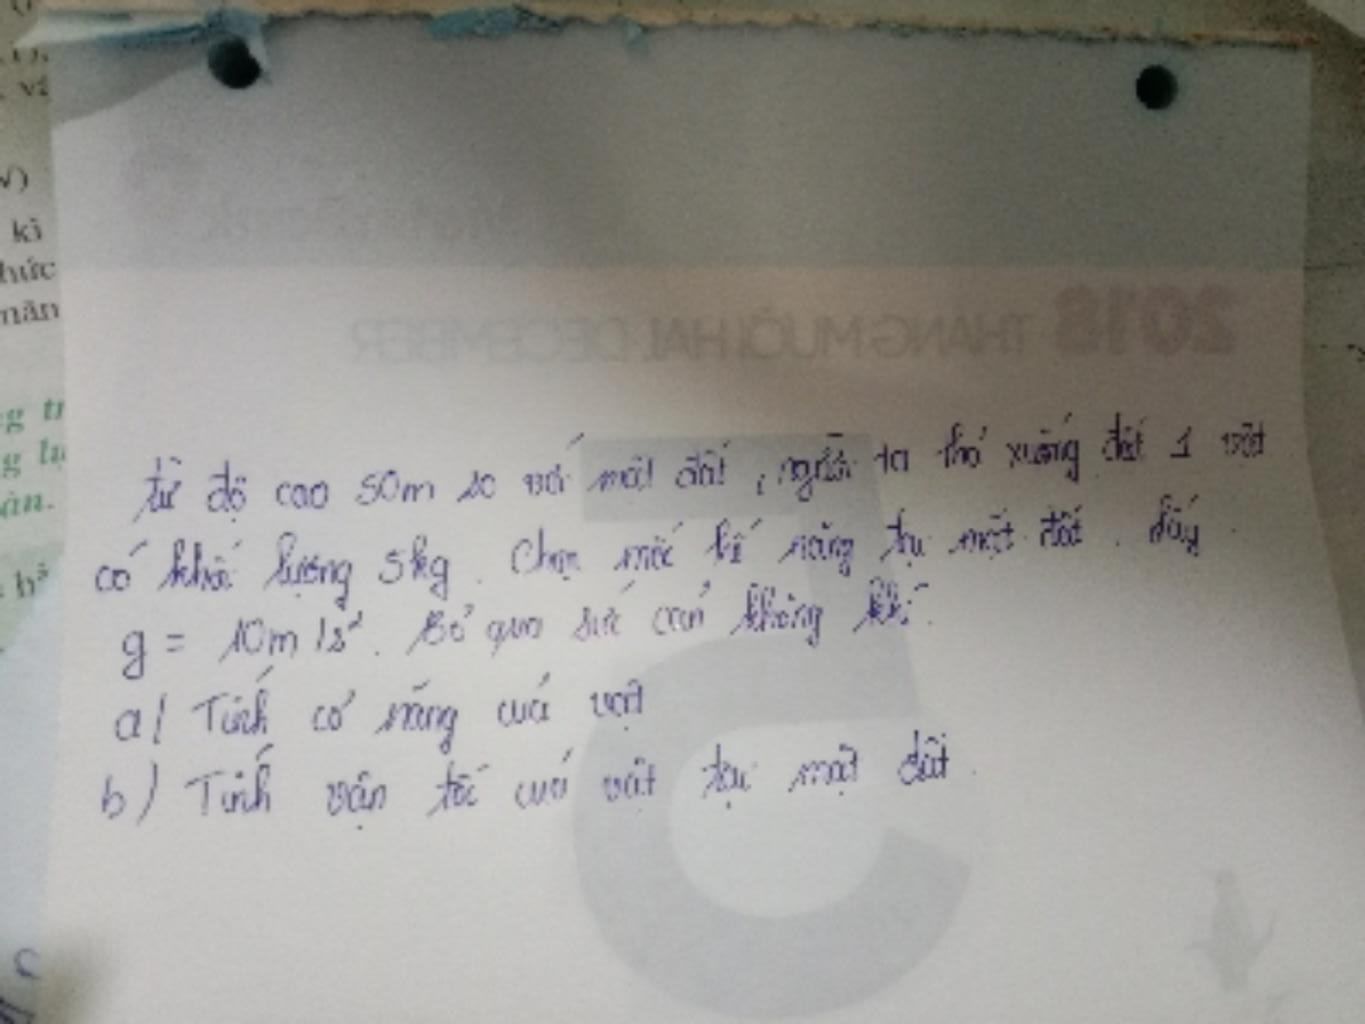 2018 THÁNG MƯỜI HAI, DECEMBER
từ độ cao 50m so với mặt đất, người ta thả xuống đất 1 vật
có khối lượng 5kg. Chọn mốc thế năng tại mặt đất. Lấy
g = 10m/s². Bỏ qua sức cản không khí.
a/ Tính cơ năng của vật
b) Tính vận tốc của vật tại mặt đất.
5
kì
hức
năn